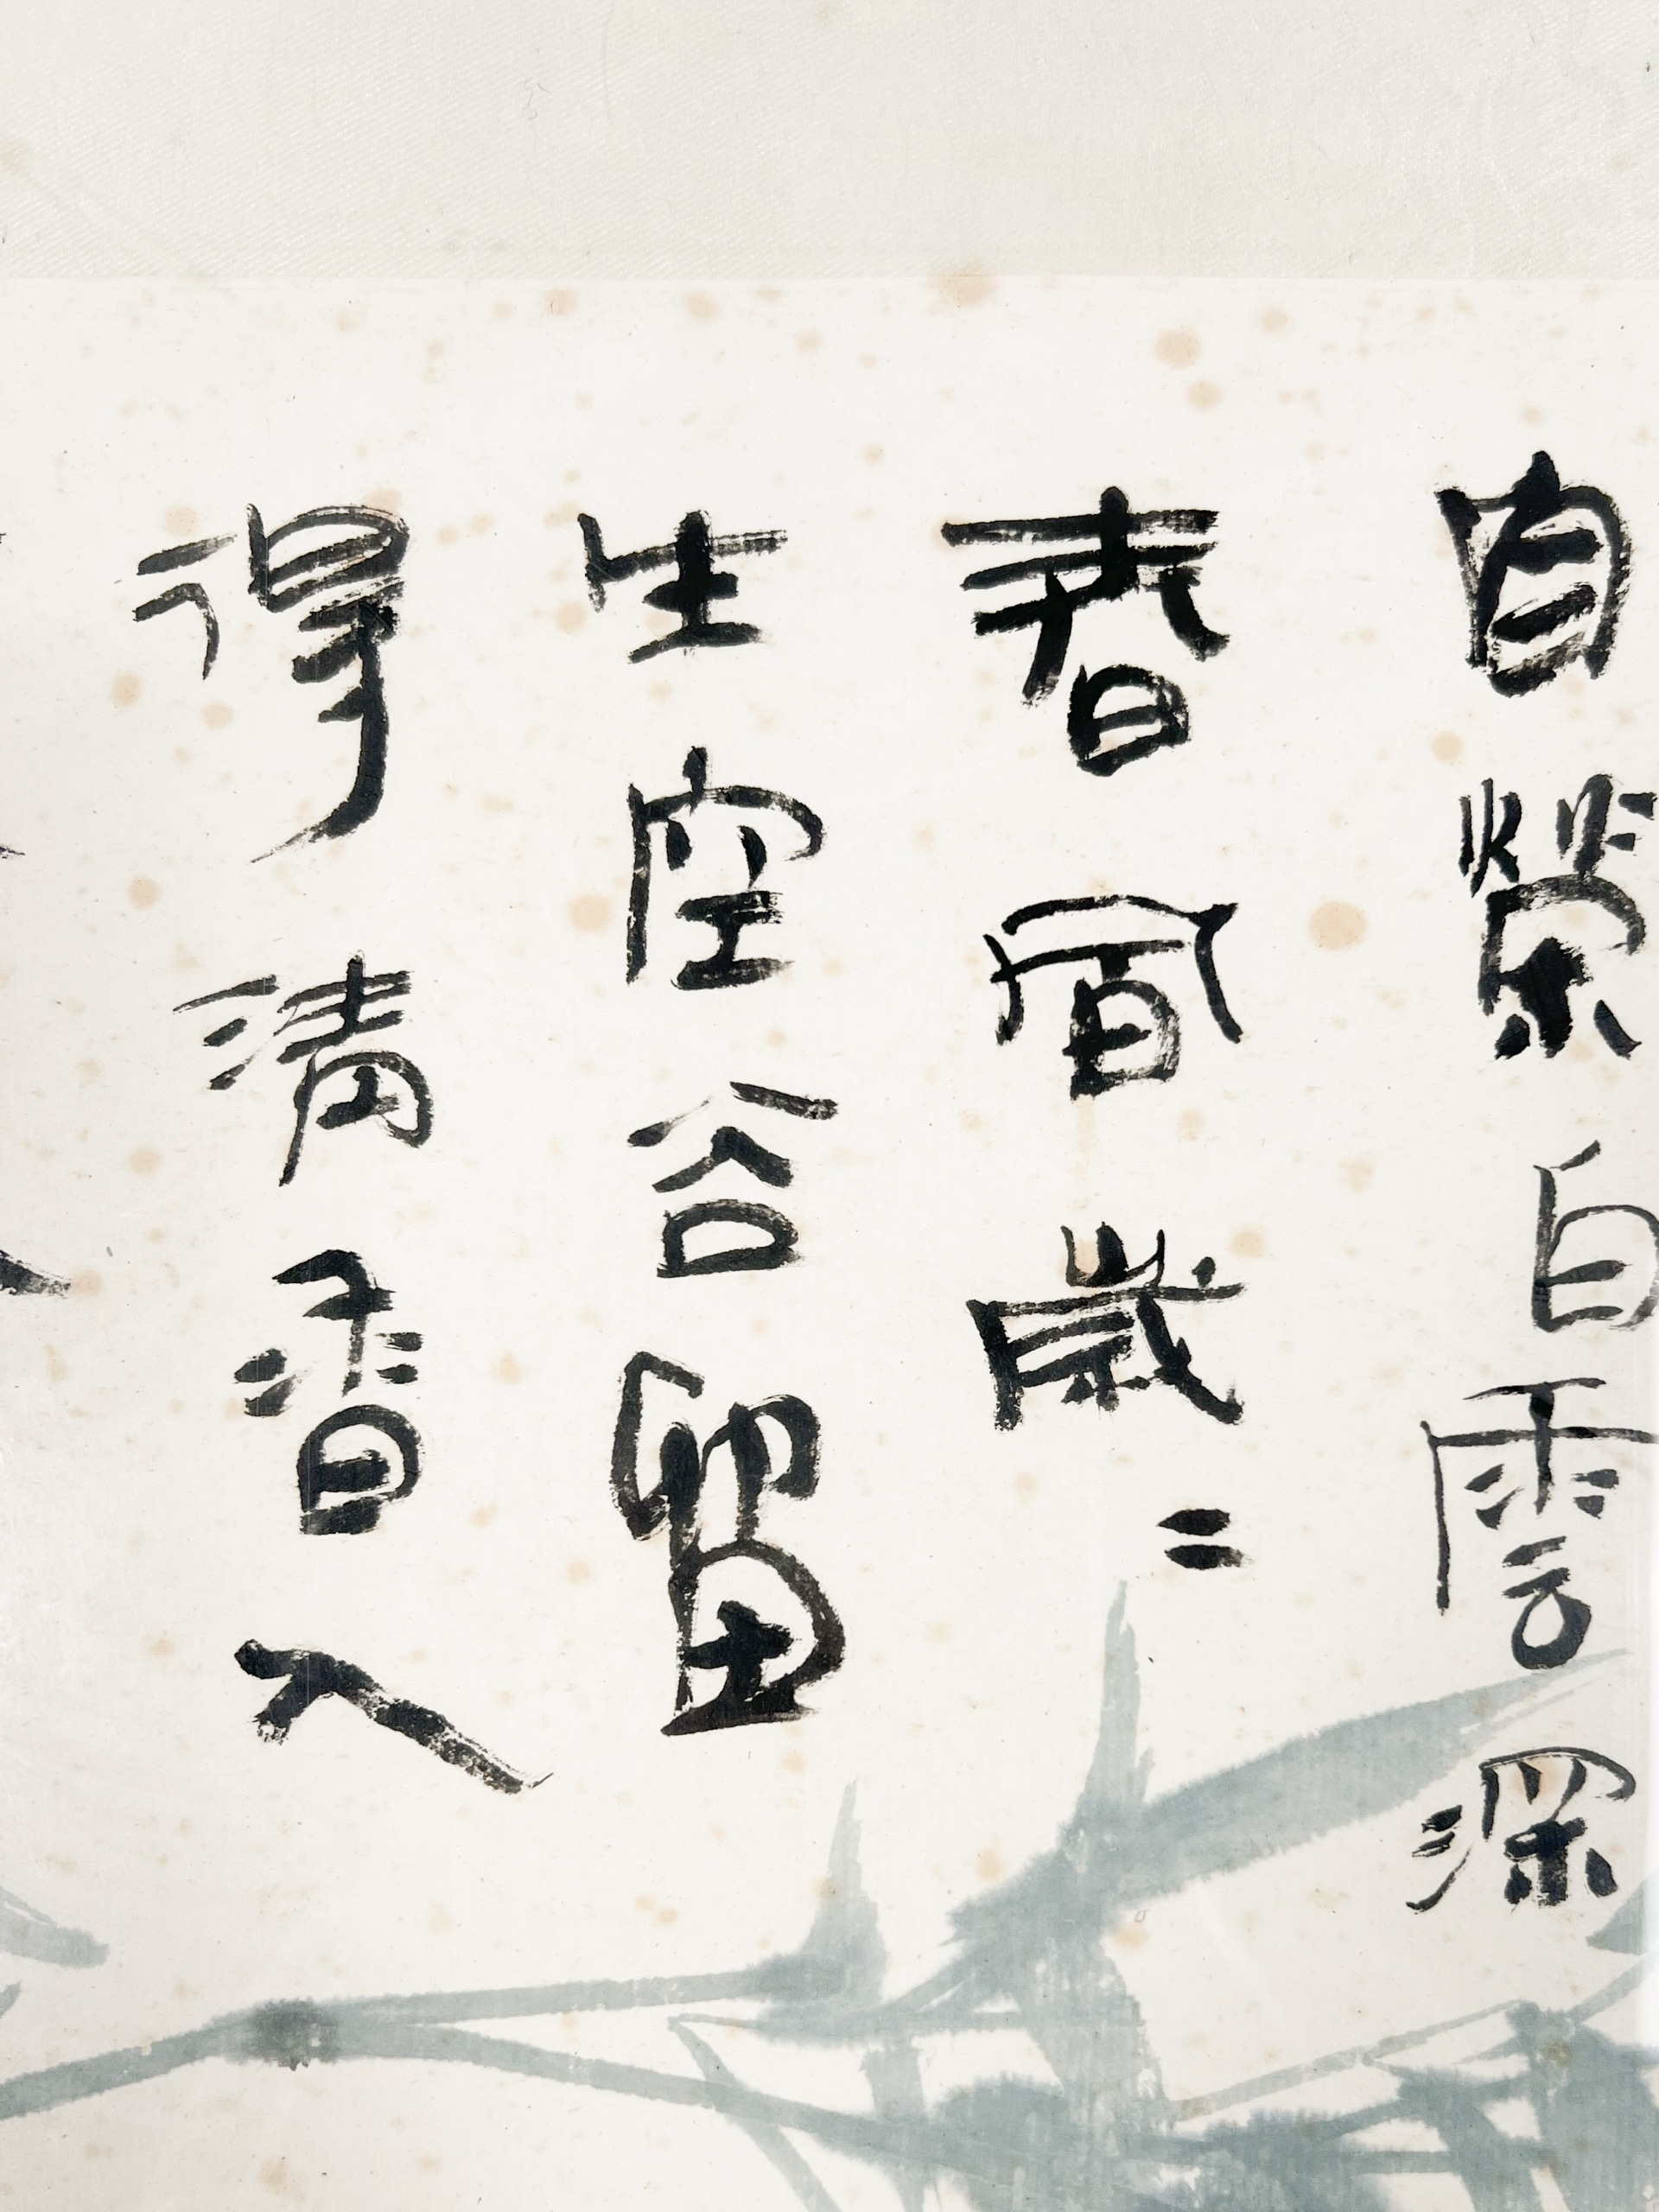 自榮白雲深
春風歲〻
生空谷留
得清香入